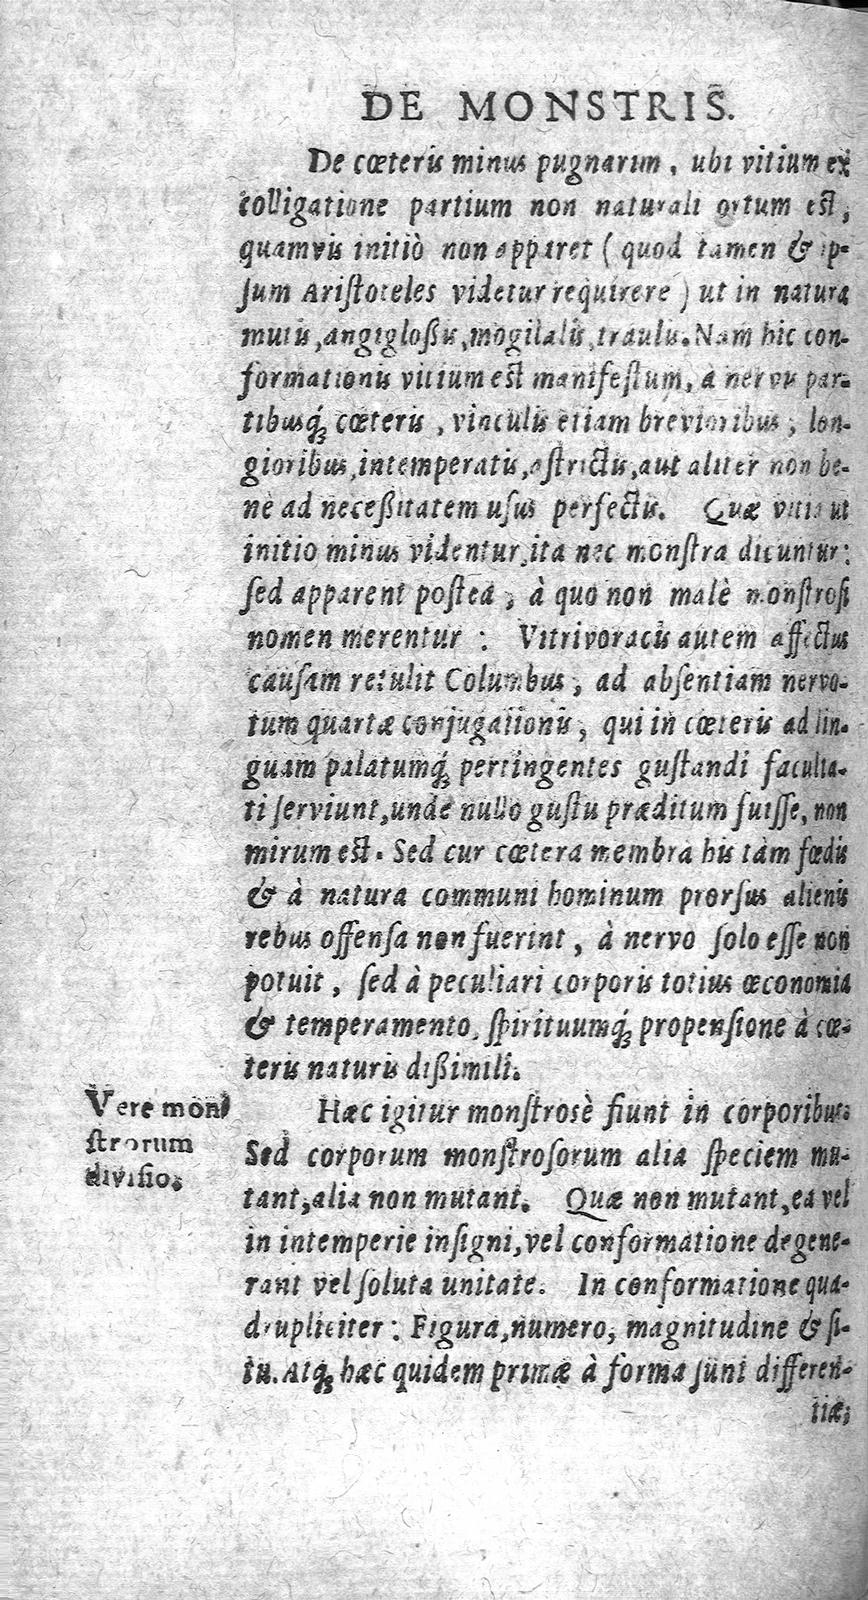 DE MONSTRIS.
De cæteris minus pugnarim, ubi vitium ex
colligatione partium non naturali ortum est,
quamvis initiò non apparet ( quod tamen & ip-
sum Aristoteles videtur requirere ) ut in natura
mutis, angigloßis, mogilalis, traulis. Nam hic con-
formationis vitium est manifestum, a nervis par-
tibusq́; cœteris, vinculis etiam brevioribus, lon-
gioribus, intemperatis, astrictis, aut aliter non be-
nè ad neceßitatem usus perfectis. Quæ vitia ut
initio minus videntur, ita nec monstra dicuntur:
sed apparent postea, à quo non malè monstrosi
nomen merentur : Vitrivoracis autem affectus
causam retulit Columbus, ad absentiam nervo-
tum quartæ conjugationis, qui in cœteris ad lin-
guam palatumq́; pertingentes gustandi faculta-
ti serviunt, unde nullo gustu præditum fuisse, non
mirum est. Sed cur cœtera membra his tàm fœdis
& à natura communi hominum prorsus alienis
rebus offensa non fuerint, à nervo solo esse non
potuit, sed à peculiari corporis totius œconomia
& temperamento, spirituumq́; propensione à cœ-
teris naturis dißimili.
Vere mon
strorum
divisio.
Hæc igitur monstrosè fiunt in corporibus:
Sed corporum monstrosorum alia speciem mu-
tant, alia non mutant. Quæ non mutant, ea vel
in intemperie insigni, vel conformatione degene-
rant vel soluta unitate. In conformatione qua-
drupliciter: Figura, numero, magnitudine & si-
tu. Atq́; hæc quidem primæ à forma sunt differen-
tiæ;